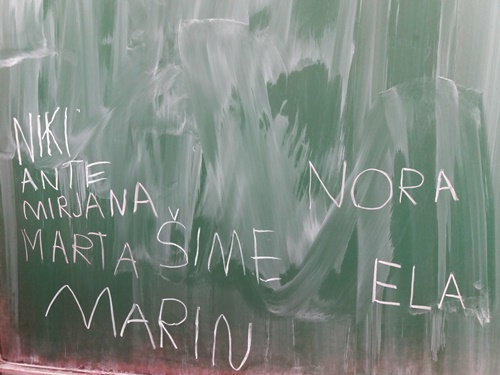 NIKI
ANTE
MIRJANA
MARTA
ŠIME
MARIN
NORA
ELA